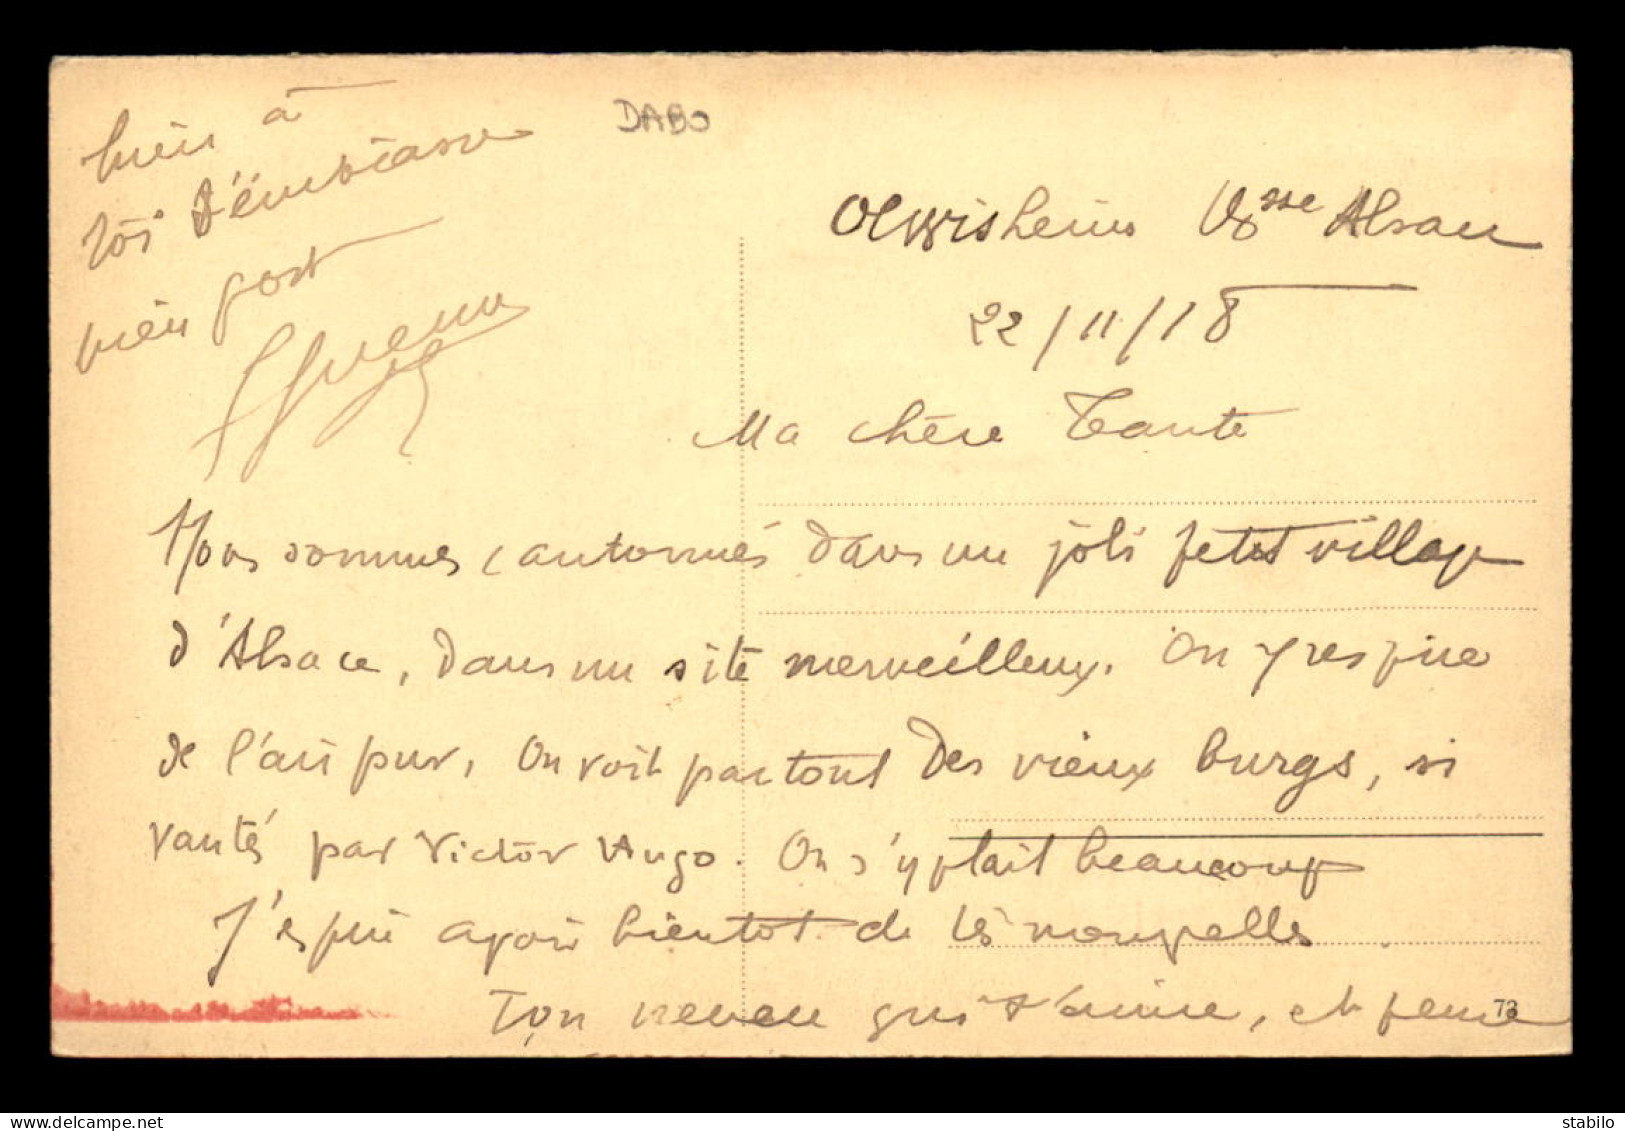 DABO
Olwisheim Bsse Alsace
22/11/18
Ma chère Tante
Nous sommes cantonnés dans un joli petit village
d'Alsace, dans un site merveilleux. On y respire
de l'air pur, on voit partout des vieux burgs, si
vantés par Victor Hugo. On s'y plait beaucoup
J'espère avoir bientot de tes nouvelles
Ton neveu qui t'aime, et pense
73
bien à
toi t'embrasse
bien fort
stabilo